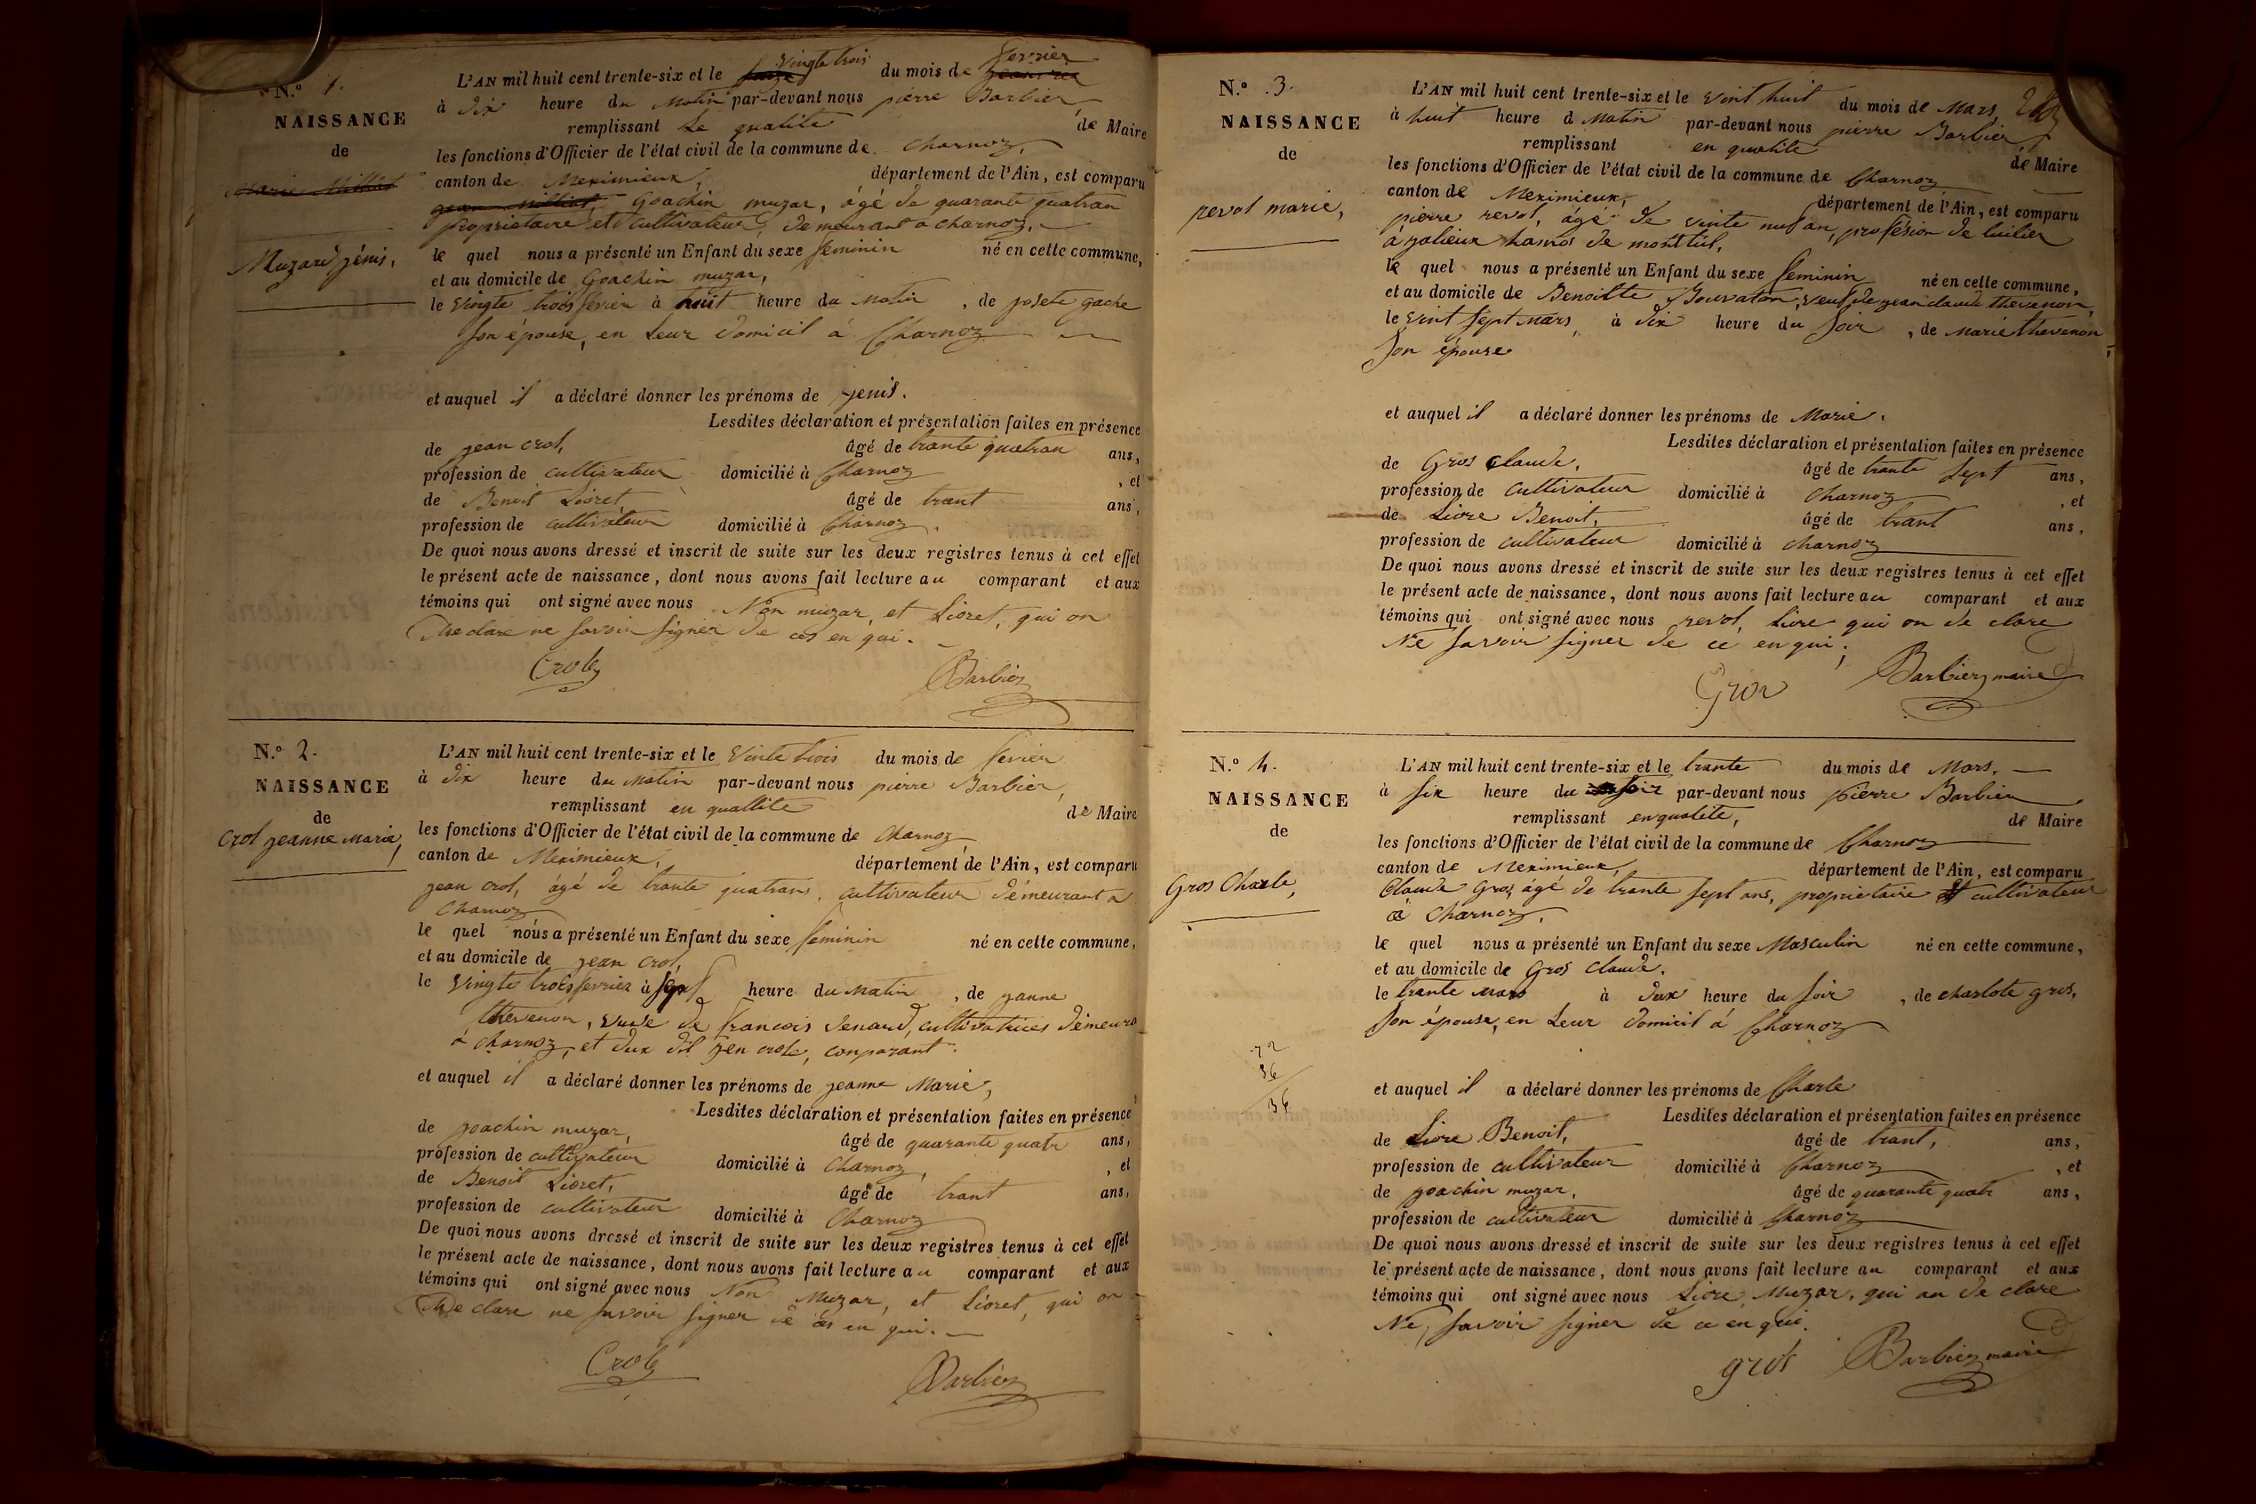 N.º 1.
NAISSANCE
de
Marie Milliat
Muzard jénis,
L'AN mil huit cent trente-six et le vingte trois du mois de fevrier
à dix heure du Matin par-devant nous pierre Barbier,
remplissant Le qualite de Maire
les fonctions d'Officier de l'état civil de la commune de Charnoz,
canton de Meximieux, département de l'Ain, est comparu
Goachin muzar, âgé de quarante quatran
propriétaire et cultivateur, demeurant a charnoz,
le quel nous a présenté un Enfant du sexe feminin né en cette commune,
et au domicile de Goachin muzar,
le vingte trois fevrier à huit heure du Matin, de josete gache
son épouse, en Leur domicil á Charnoz
et auquel il a déclaré donner les prénoms de jenis.
Lesdites déclaration et présentation faites en présence
de jean crot, âgé de trante quatran ans,
profession de cultivateur domicilié à Charnoz, et
de Benoit Lioret âgé de trant ans,
profession de cultivateur domicilié à Charnoz.
De quoi nous avons dressé et inscrit de suite sur les deux registres tenus à cet effet
le présent acte de naissance, dont nous avons fait lecture au comparant et aux
témoins qui ont signé avec nous Non muzar, et Lioret, qui on
declare ne savoir signer de ces en qui.
Crot
Barbier
N.º 2.
NAISSANCE
de
Crot jeanne Marie,
L'AN mil huit cent trente-six et le vinte trois du mois de fevrier
à dix heure du Matin par-devant nous pierre Barbier,
remplissant en quallite de Maire
les fonctions d'Officier de l'état civil de la commune de Charnoz
canton de Meximieux, département de l'Ain, est comparu
jean crot, âgé de trante quatran, cultivateur démeurant a
Charnoz
le quel nous a présenté un Enfant du sexe feminin né en cette commune,
et au domicile de jean crot,
le vingte trois fevrier à sept heure du Matin, de janne
thevenon, vuve de francois denard, cultivatrices démeura
à charnoz, et dux dil jen crote, conparant.
et auquel il a déclaré donner les prénoms de jeanne Marie,
Lesdites déclaration et présentation faites en présence
de joachin muzar, âgé de quarante quatr ans,
profession de cultivateur domicilié à Charnoz, et
de Benoit Lioret, âgé de trant ans,
profession de cultivateur domicilié à Charnoz
De quoi nous avons dressé et inscrit de suite sur les deux registres tenus à cet effet
le présent acte de naissance, dont nous avons fait lecture au comparant et aux
témoins qui ont signé avec nous Non Muzar, et Lioret, qui on
declare ne savoir signer de ces en qui.
Crot
Barbier
N.º 3.
NAISSANCE
de
revol marie,
L'AN mil huit cent trente-six et le vint huit du mois de Mars,
à huit heure d Matin par-devant nous pierre Barbier,
remplissant en qualite de Maire
les fonctions d'Officier de l'état civil de la commune de Charnoz
canton de Meximieux, département de l'Ain, est comparu
pierre revol, âgé de vinte nuf an, profésion de tuilier
á jalieux de montluel,
le quel nous a présenté un Enfant du sexe feminin né en cette commune,
et au domicile de Benoitte Bouvaton, veuf de jean claude thevenon,
le vint sept mars, à dix heure du soir, de marie thevenon
son épouse
et auquel il a déclaré donner les prénoms de Marie.
Lesdites déclaration et présentation faites en présence
de Gros Claude, âgé de trante sept ans,
profession de cultivateur domicilié à Charnoz, et
de Liore Benoit, âgé de trant ans,
profession de cultivateur domicilié à charnoz
De quoi nous avons dressé et inscrit de suite sur les deux registres tenus à cet effet
le présent acte de naissance, dont nous avons fait lecture au comparant et aux
témoins qui ont signé avec nous revol, Liore qui on de clare
Ne savoir signer de ce en qui;
Gros
Barbier maire
N.º 4.
NAISSANCE
de
Gros Charle,
72
36
36
L'AN mil huit cent trente-six et le trante du mois de Mars.
à six heure du soir par-devant nous pierre Barbier
remplissant en qualite, de Maire
les fonctions d'Officier de l'état civil de la commune de Charnoz
canton de Meximieux, département de l'Ain, est comparu
Claude Gros, âgé de trante sept ans, proprietaire et cultivateur
à Charnoz,
le quel nous a présenté un Enfant du sexe Masculin né en cette commune,
et au domicile de Gros claude.
le trante mars à dux heure du soir, de charlote gros,
son épouse, en Leur domicil á Charnoz
et auquel il a déclaré donner les prénoms de Charle
Lesdites déclaration et présentation faites en présence
de Liore Benoit, âgé de trant, ans,
profession de cultivateur domicilié à Charnoz, et
de joachin muzar, âgé de quarante quatr ans,
profession de cultivateur domicilié à Charnoz
De quoi nous avons dressé et inscrit de suite sur les deux registres tenus à cet effet
le présent acte de naissance, dont nous avons fait lecture au comparant et aux
témoins qui ont signé avec nous Liore, Muzar, qui an de clare
Ne, savoir signer de ce en qui.
gros
Barbier maire